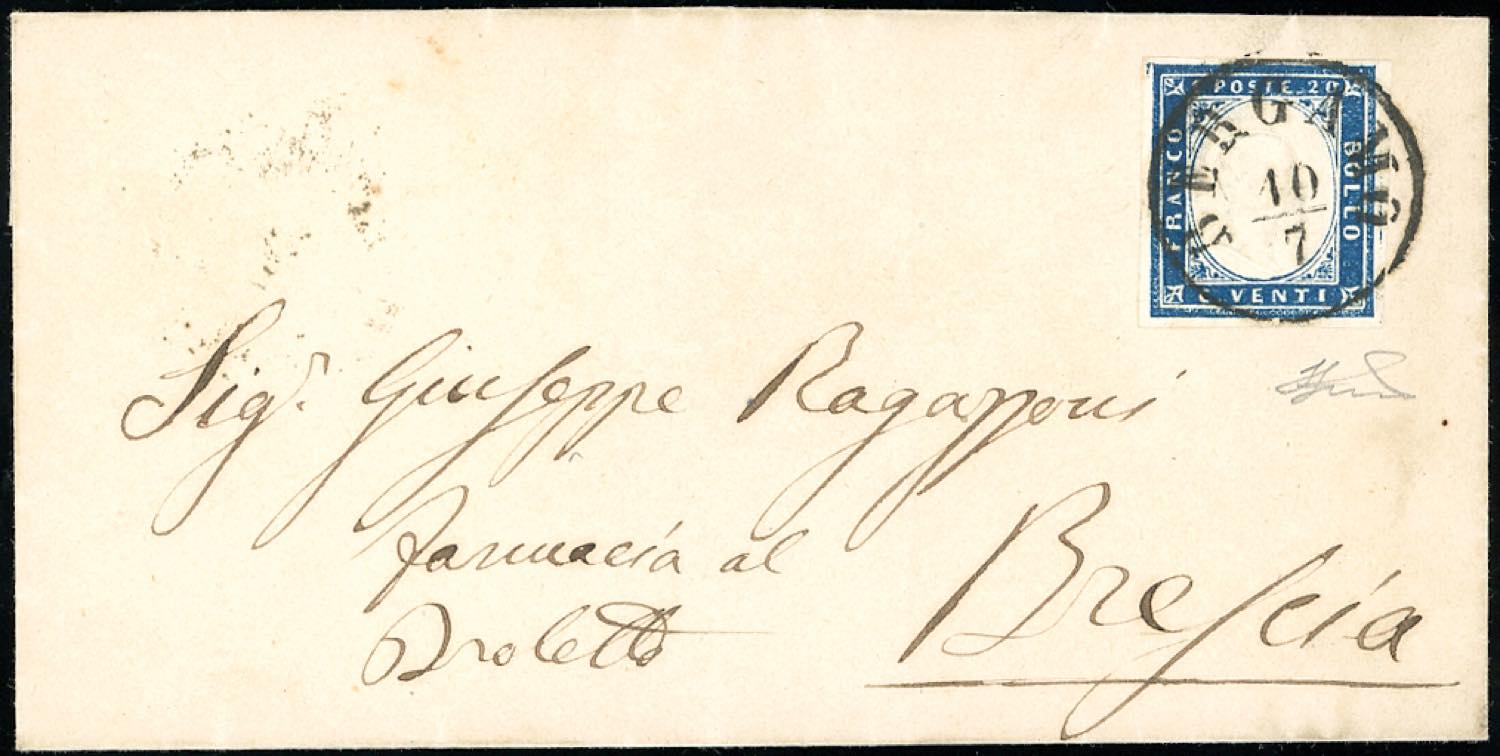 C POSTE 20
FRANCO
BOLLO
C VENTI
BERGAMO
10
7
Sigr. Giuseppe Ragazzoni
farmacia al
Broletto
Brescia